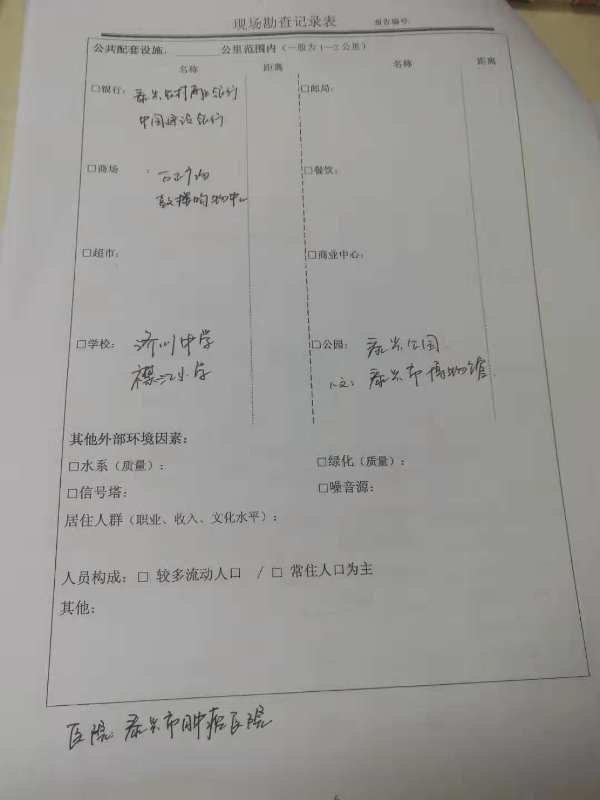 现场勘查记录表 报告编号:
公共配套设施. 公里范围内（一般为1—2公里）
名称 距离 名称 距离
□银行: 泰兴农村商业银行 □邮局:
中国建设银行
□商场 □餐饮:
鼓楼购物中心
□超市: □商业中心:
□学校: 济川中学 □公园: 泰兴公园
襟江小学 泰兴市博物馆
其他外部环境因素:
□水系（质量）: □绿化（质量）:
□信号塔: □噪音源:
居住人群（职业、收入、文化水平）:
人员构成: □ 较多流动人口 / □ 常住人口为主
其他:
医院: 泰兴市肿瘤医院